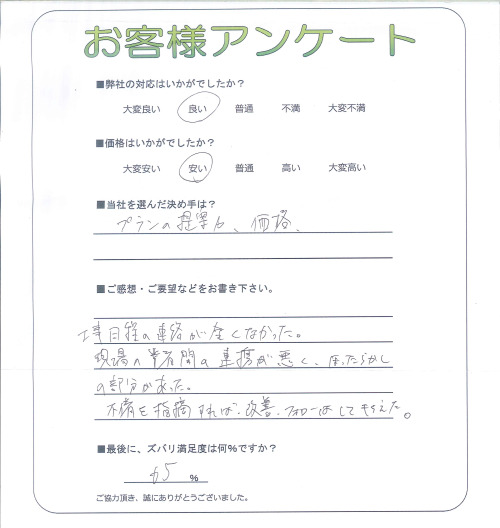 お客様アンケート
■弊社の対応はいかがでしたか？
大変良い 良い 普通 不満 大変不満
■価格はいかがでしたか？
大変安い 安い 普通 高い 大変高い
■当社を選んだ決め手は？
プランの提案力、価格、
■ご感想・ご要望などをお書き下さい。
工事日程の連絡が なくなかった。
現場の業者間の連携が悪く、ほったらかし
の部分があった。
不備を指摘すれば、改善、フォローはしてもらえた。
■最後に、ズバリ満足度は何%ですか？
65 %
ご協力頂き、誠にありがとうございました。